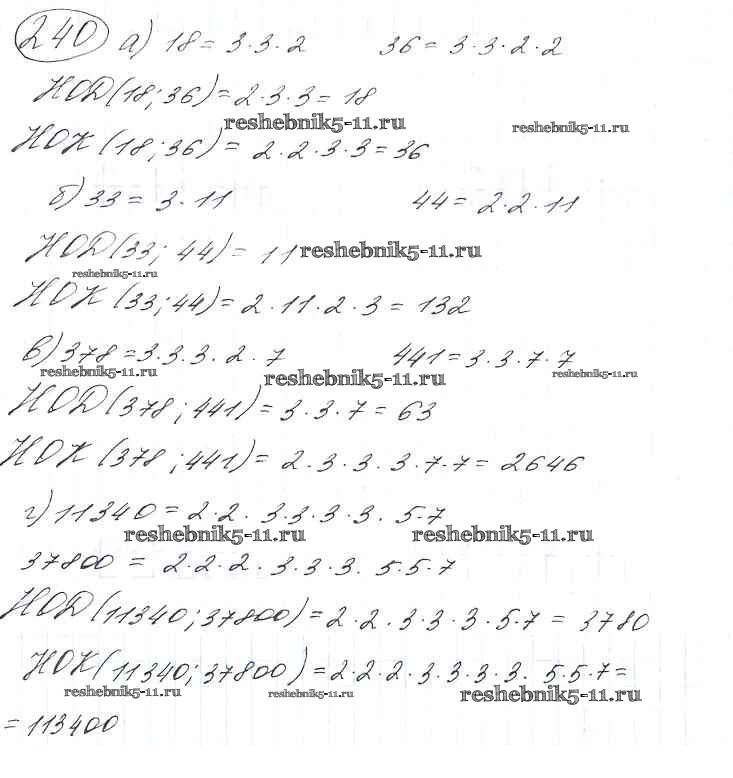 240 а) 18 = 3·3·2 36 = 3·3·2·2
НОД(18;36) = 2·3·3 = 18
reshebnik5-11.ru reshebnik5-11.ru
НОК(18;36) = 2·2·3·3 = 36
б) 33 = 3·11 44 = 2·2·11
НОД(33; 44) = 11 reshebnik5-11.ru
reshebnik5-11.ru
НОК(33;44) = 2·11·2·3 = 132
в) 378 = 3·3·3·2·7 441 = 3·3·7·7
reshebnik5-11.ru reshebnik5-11.ru reshebnik5-11.ru
НОД(378;441) = 3·3·7 = 63
НОК(378;441) = 2·3·3·3·7·7 = 2646
г) 11340 = 2·2·3·3·3·3·5·7
reshebnik5-11.ru reshebnik5-11.ru
37800 = 2·2·2·3·3·3·5·5·7
НОД(11340;37800) = 2·2·3·3·3·5·7 = 3780
НОК(11340;37800) = 2·2·2·3·3·3·3·5·5·7 =
reshebnik5-11.ru reshebnik5-11.ru reshebnik5-11.ru
= 113400